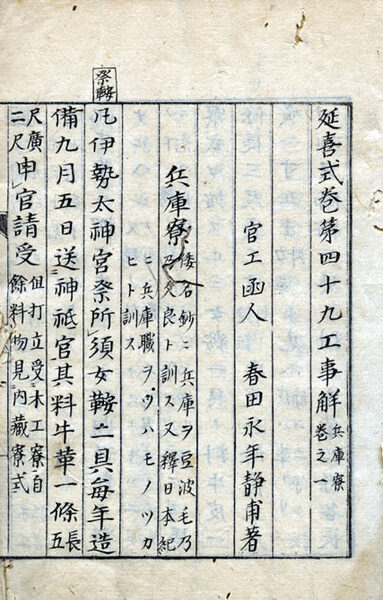 延喜式巻第四十九工事解 兵庫寮
巻之一
官工函人 春田永年静甫著
兵庫寮 倭名鈔ニ兵庫ヲ豆波毛乃
乃久良ト訓ス又釋日本紀
ニ兵庫職ヲウハモノツカ
ヒト訓ス
祭鞍
凡伊勢太神宮祭所須女鞍二具毎年造
備九月五日送神祇官其料牛革一條長五
尺廣
二尺 申官請受 但打立受木工寮自
餘料物見内藏寮式